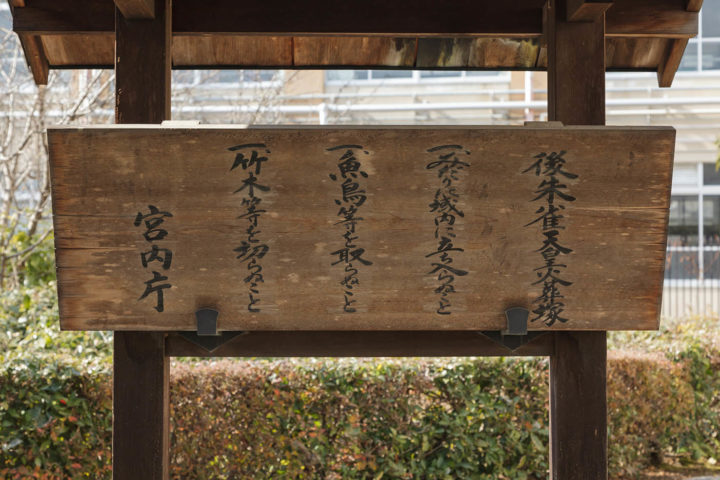 後朱雀天皇火葬塚
一みだりに域内に立ち入らぬこと
一魚鳥等を取らぬこと
一竹木等を切らぬこと
宮内庁